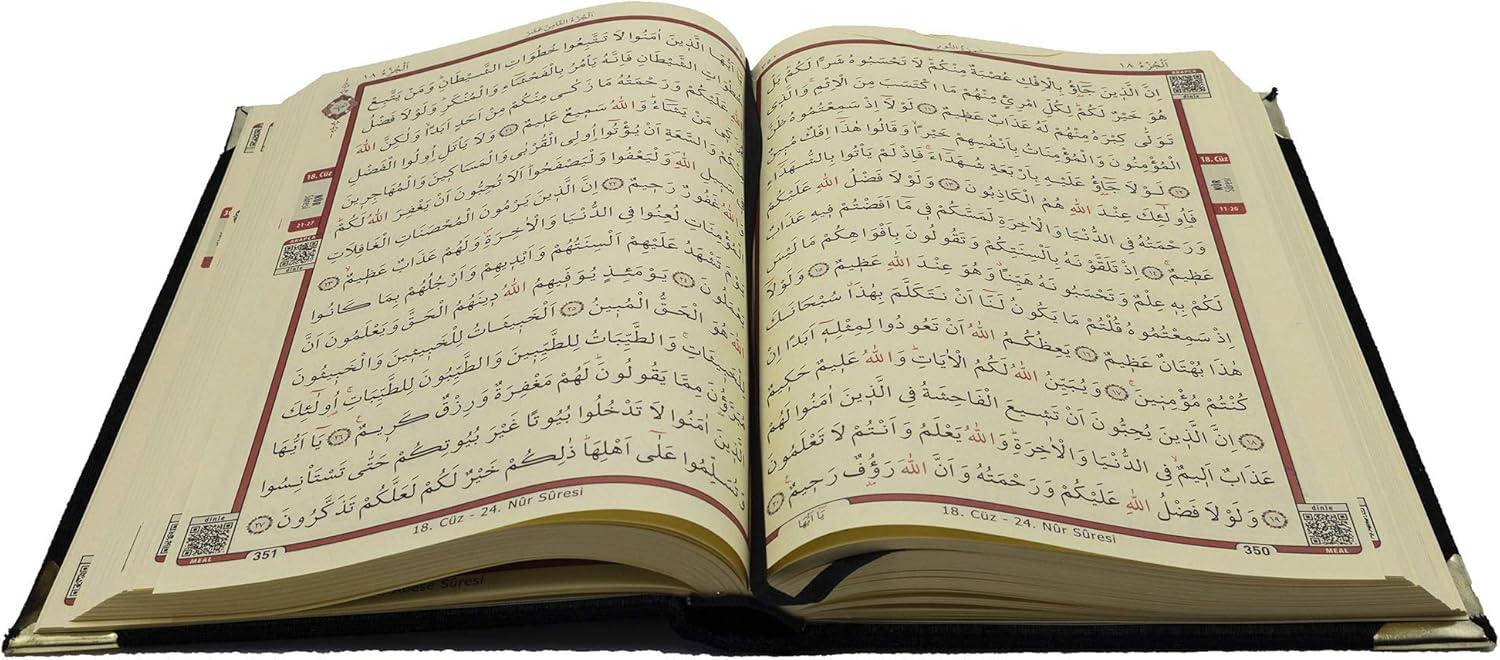 اَلْجُزْءُ ١٨
سُورَةُ النُّورِ
اِنَّ الَّذ۪ينَ جَٓاؤُ۫ بِالْاِفْكِ عُصْبَةٌ مِنْكُمْۜ لَا تَحْسَبُوهُ شَرًّا لَكُمْۜ بَلْ
هُوَ خَيْرٌ لَكُمْۜ لِكُلِّ امْرِئٍ مِنْهُمْ مَا اكْتَسَبَ مِنَ الْاِثْمِۚ وَالَّذ۪ي
تَوَلّٰى كِبْرَهُ مِنْهُمْ لَهُ عَذَابٌ عَظ۪يمٌ ١١ لَوْلَٓا اِذْ سَمِعْتُمُوهُ ظَنَّ
الْمُؤْمِنُونَ وَالْمُؤْمِنَاتُ بِاَنْفُسِهِمْ خَيْرًاۙ وَقَالُوا هٰذَٓا اِفْكٌ مُب۪ينٌ
١٢ لَوْلَا جَٓاؤُ۫ عَلَيْهِ بِاَرْبَعَةِ شُهَدَٓاءَۚ فَاِذْ لَمْ يَأْتُوا بِالشُّهَدَٓاءِ
فَاُو۬لٰٓئِكَ عِنْدَ اللّٰهِ هُمُ الْكَاذِبُونَ ١٣ وَلَوْلَا فَضْلُ اللّٰهِ عَلَيْكُمْ
وَرَحْمَتُهُ فِي الدُّنْيَا وَالْاٰخِرَةِ لَمَسَّكُمْ ف۪ي مَٓا اَفَضْتُمْ ف۪يهِ عَذَابٌ
عَظ۪يمٌ ١٤ اِذْ تَلَقَّوْنَهُ بِاَلْسِنَتِكُمْ وَتَقُولُونَ بِاَفْوَاهِكُمْ مَا لَيْسَ
لَكُمْ بِه۪ عِلْمٌ وَتَحْسَبُونَهُ هَيِّنًاۗ وَهُوَ عِنْدَ اللّٰهِ عَظ۪يمٌ ١٥ وَلَوْلَٓا
اِذْ سَمِعْتُمُوهُ قُلْتُمْ مَا يَكُونُ لَنَٓا اَنْ نَتَكَلَّمَ بِهٰذَاۗ سُبْحَانَكَ
هٰذَا بُهْتَانٌ عَظ۪يمٌ ١٦ يَعِظُكُمُ اللّٰهُ اَنْ تَعُودُوا لِمِثْلِه۪ٓ اَبَدًا اِنْ
كُنْتُمْ مُؤْمِن۪ينَۚ ١٧ وَيُبَيِّنُ اللّٰهُ لَكُمُ الْاٰيَاتِۜ وَاللّٰهُ عَل۪يمٌ حَك۪يمٌ
١٨ اِنَّ الَّذ۪ينَ يُحِبُّونَ اَنْ تَش۪يعَ الْفَاحِشَةُ فِي الَّذ۪ينَ اٰمَنُوا لَهُمْ
عَذَابٌ اَل۪يمٌۙ فِي الدُّنْيَا وَالْاٰخِرَةِۜ وَاللّٰهُ يَعْلَمُ وَاَنْتُمْ لَا تَعْلَمُونَ
١٩ وَلَوْلَا فَضْلُ اللّٰهِ عَلَيْكُمْ وَرَحْمَتُهُ وَاَنَّ اللّٰهَ رَؤُ۫فٌ رَح۪يمٌ۟ ٢٠
يَٓا اَيُّهَا
18. Cüz - 24. Nûr Sûresi
350
ARAPÇA
dinle
18. Cüz
NÛR
Sûresi
11-20
dinle
MEAL
اَلْجُزْءُ الثَّامِنَ عَشَرَ
اَلْجُزْءُ ١٨
اَيُّهَا الَّذ۪ينَ اٰمَنُوا لَا تَتَّبِعُوا خُطُوَاتِ الشَّيْطَانِۜ وَمَنْ يَتَّبِعْ
الشَّيْطَانِ فَاِنَّهُ يَأْمُرُ بِالْفَحْشَٓاءِ وَالْمُنْكَرِۜ وَلَوْلَا فَضْلُ
اللّٰهِ عَلَيْكُمْ وَرَحْمَتُهُ مَا زَكٰى مِنْكُمْ مِنْ اَحَدٍ اَبَدًاۙ وَلٰكِنَّ اللّٰهَ
مَنْ يَشَٓاءُۜ وَاللّٰهُ سَم۪يعٌ عَل۪يمٌ ٢١ وَلَا يَأْتَلِ اُو۬لُوا الْفَضْلِ
وَالسَّعَةِ اَنْ يُؤْتُٓوا اُو۬لِي الْقُرْبٰى وَالْمَسَاك۪ينَ وَالْمُهَاجِر۪ينَ
سَب۪يلِ اللّٰهِۖ وَلْيَعْفُوا وَلْيَصْفَحُواۜ اَلَا تُحِبُّونَ اَنْ يَغْفِرَ اللّٰهُ لَكُمْۜ
اللّٰهُ غَفُورٌ رَح۪يمٌ ٢٢ اِنَّ الَّذ۪ينَ يَرْمُونَ الْمُحْصَنَاتِ الْغَافِلَاتِ
الْمُؤْمِنَاتِ لُعِنُوا فِي الدُّنْيَا وَالْاٰخِرَةِۖ وَلَهُمْ عَذَابٌ عَظ۪يمٌۙ ٢٣
يَوْمَ تَشْهَدُ عَلَيْهِمْ اَلْسِنَتُهُمْ وَاَيْد۪يهِمْ وَاَرْجُلُهُمْ بِمَا كَانُوا
يَعْمَلُونَ ٢٤ يَوْمَئِذٍ يُوَفّ۪يهِمُ اللّٰهُ د۪ينَهُمُ الْحَقَّ وَيَعْلَمُونَ اَنَّ
اللّٰهَ هُوَ الْحَقُّ الْمُب۪ينُ ٢٥ اَلْخَب۪يثَاتُ لِلْخَب۪يث۪ينَ وَالْخَب۪يثُونَ
لِلْخَب۪يثَاتِۚ وَالطَّيِّبَاتُ لِلطَّيِّب۪ينَ وَالطَّيِّبُونَ لِلطَّيِّبَاتِۚ اُو۬لٰٓئِكَ
مُبَرَّؤُ۫نَ مِمَّا يَقُولُونَۜ لَهُمْ مَغْفِرَةٌ وَرِزْقٌ كَر۪يمٌ۟ ٢٦ يَٓا اَيُّهَا
الَّذ۪ينَ اٰمَنُوا لَا تَدْخُلُوا بُيُوتًا غَيْرَ بُيُوتِكُمْ حَتّٰى تَسْتَأْنِسُوا
وَتُسَلِّمُوا عَلٰٓى اَهْلِهَاۜ ذٰلِكُمْ خَيْرٌ لَكُمْ لَعَلَّكُمْ تَذَكَّرُونَ ٢٧
18. Cüz - 24. Nûr Sûresi
351
18. Cüz
NÛR
Sûresi
21-27
ARAPÇA
dinle
dinle
MEAL
Sûresi